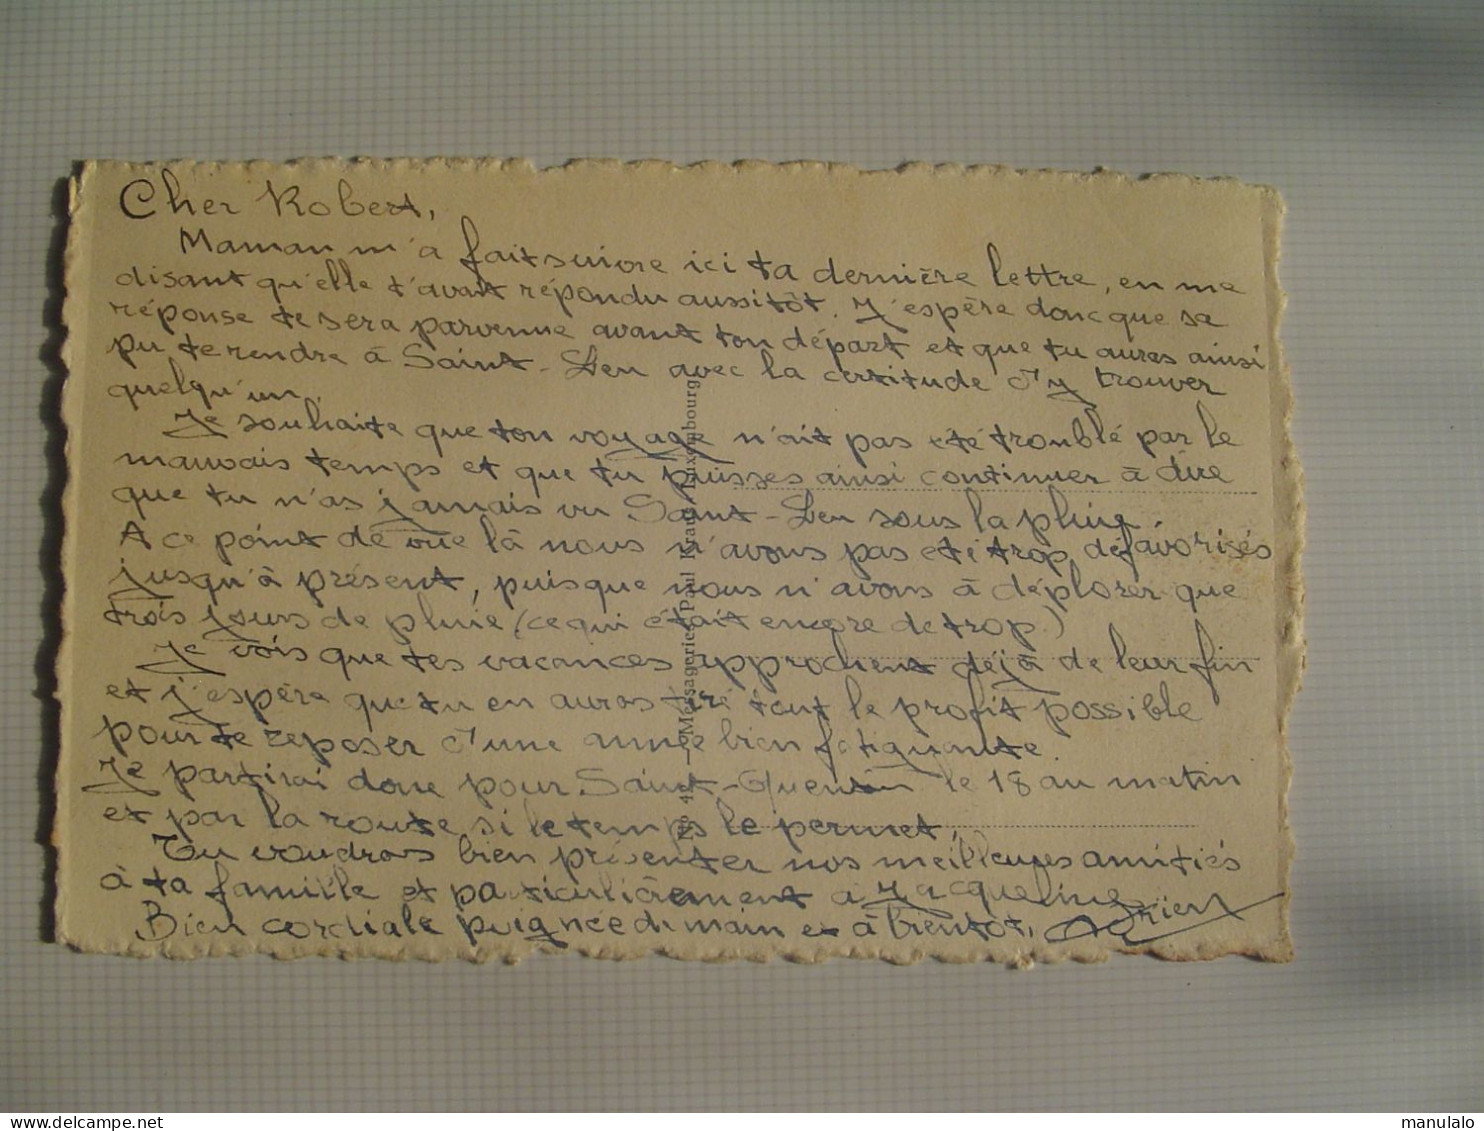 Cher Robert,
Maman m'a fait suivre ici ta dernière lettre, en me
disant qu'elle t'avait répondu aussitôt. J'espère donc que sa
réponse te sera parvenue avant ton départ et que tu auras ainsi
pu te rendre à Saint-Leu avec la certitude d'y trouver
quelqu'un.
Je souhaite que ton voyage n'ait pas été troublé par le
mauvais temps et que tu puisses ainsi continuer à dire
que tu n'as jamais vu Saint-Leu sous la pluie.
A ce point de vue là nous n'avons pas été trop défavorisés
jusqu'à présent, puisque nous n'avons à déplorer que
trois jours de pluie (ce qui était encore de trop)
Je vois que tes vacances approchent déjà de leur fin
et j'espère que tu en auras tiré tout le profit possible
pour te reposer d'une année bien fatiguante.
Je partirai donc pour Saint-Quentin le 18 au matin
et par la route si le temps le permet.
Tu voudras bien présenter nos meilleures amitiés
à ta famille et particulièrement à Jacqueline
Bien cordiale poignée de main et à bientôt, Adrien
Messageries Paul Kraus, Luxembourg
manulalo